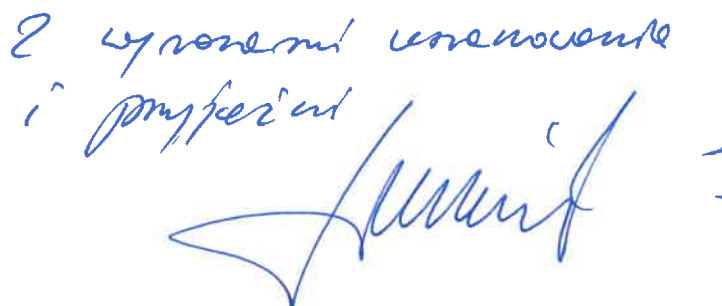 Z wyrazami uszanowania
i przyjaźni